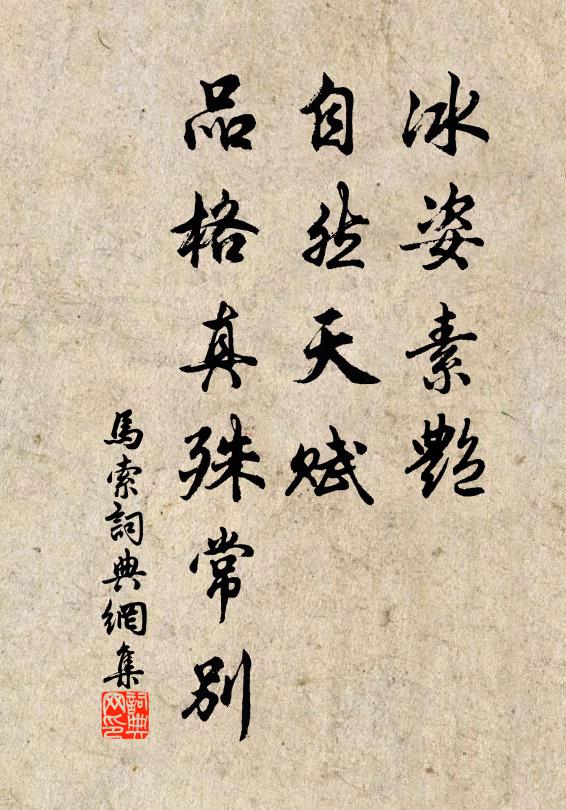 冰姿素艷
自然天賦
品格真殊常別
馬索詞典網集
詞典
网印